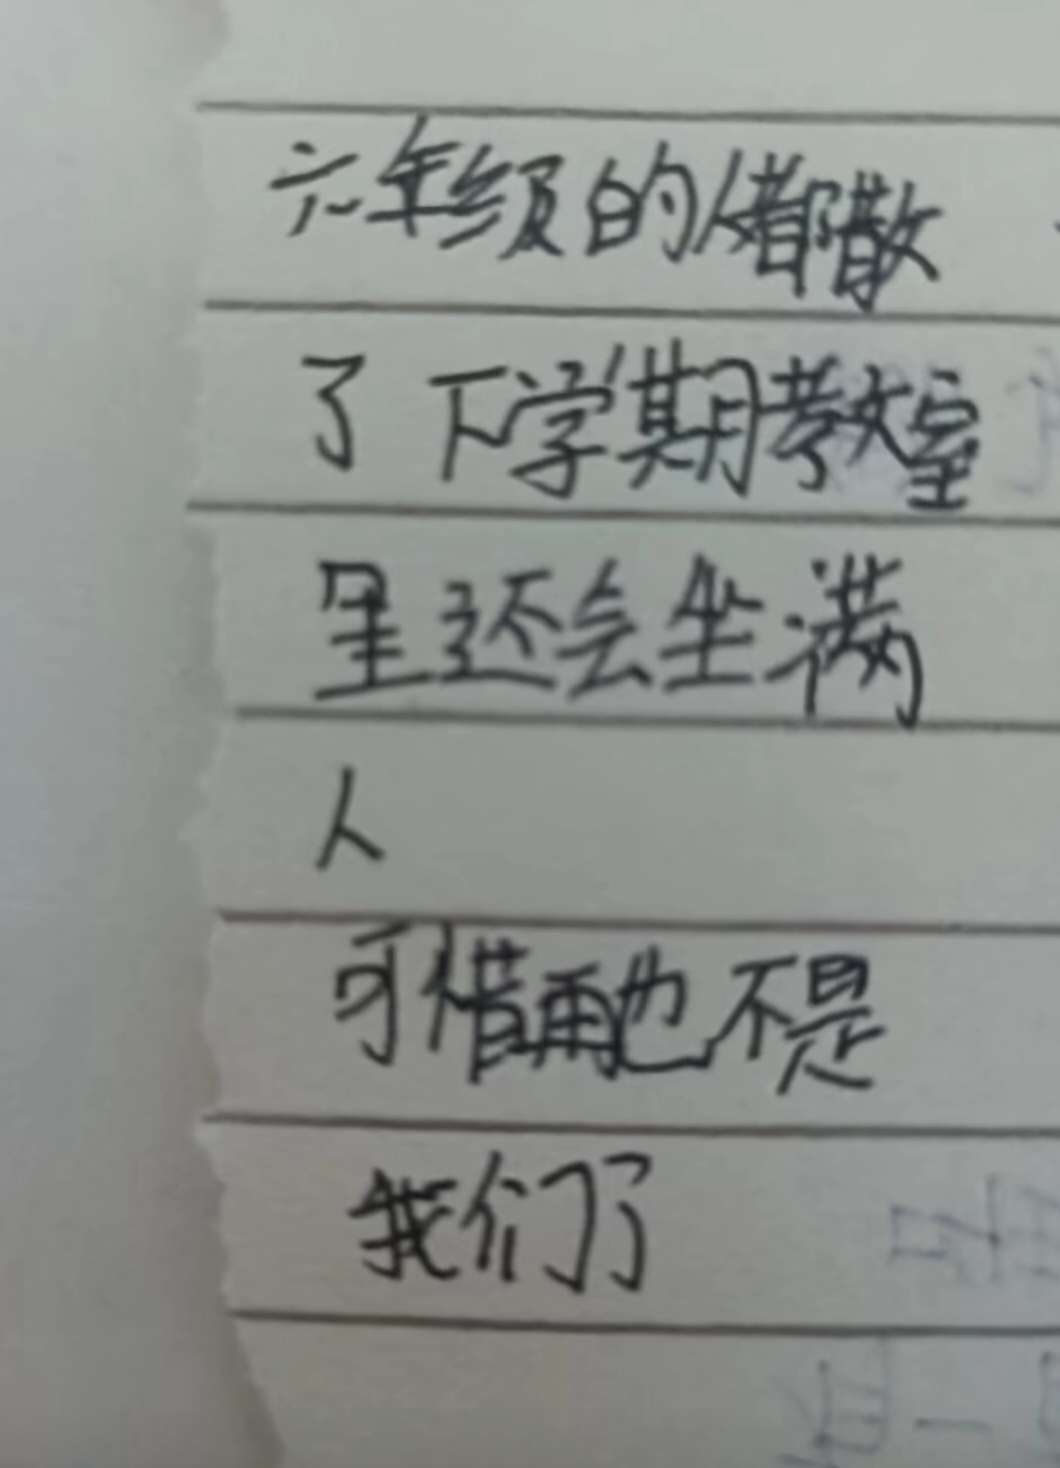 六年级的人都散
了下学期教室
里还会坐满
人
可惜再也不是
我们了